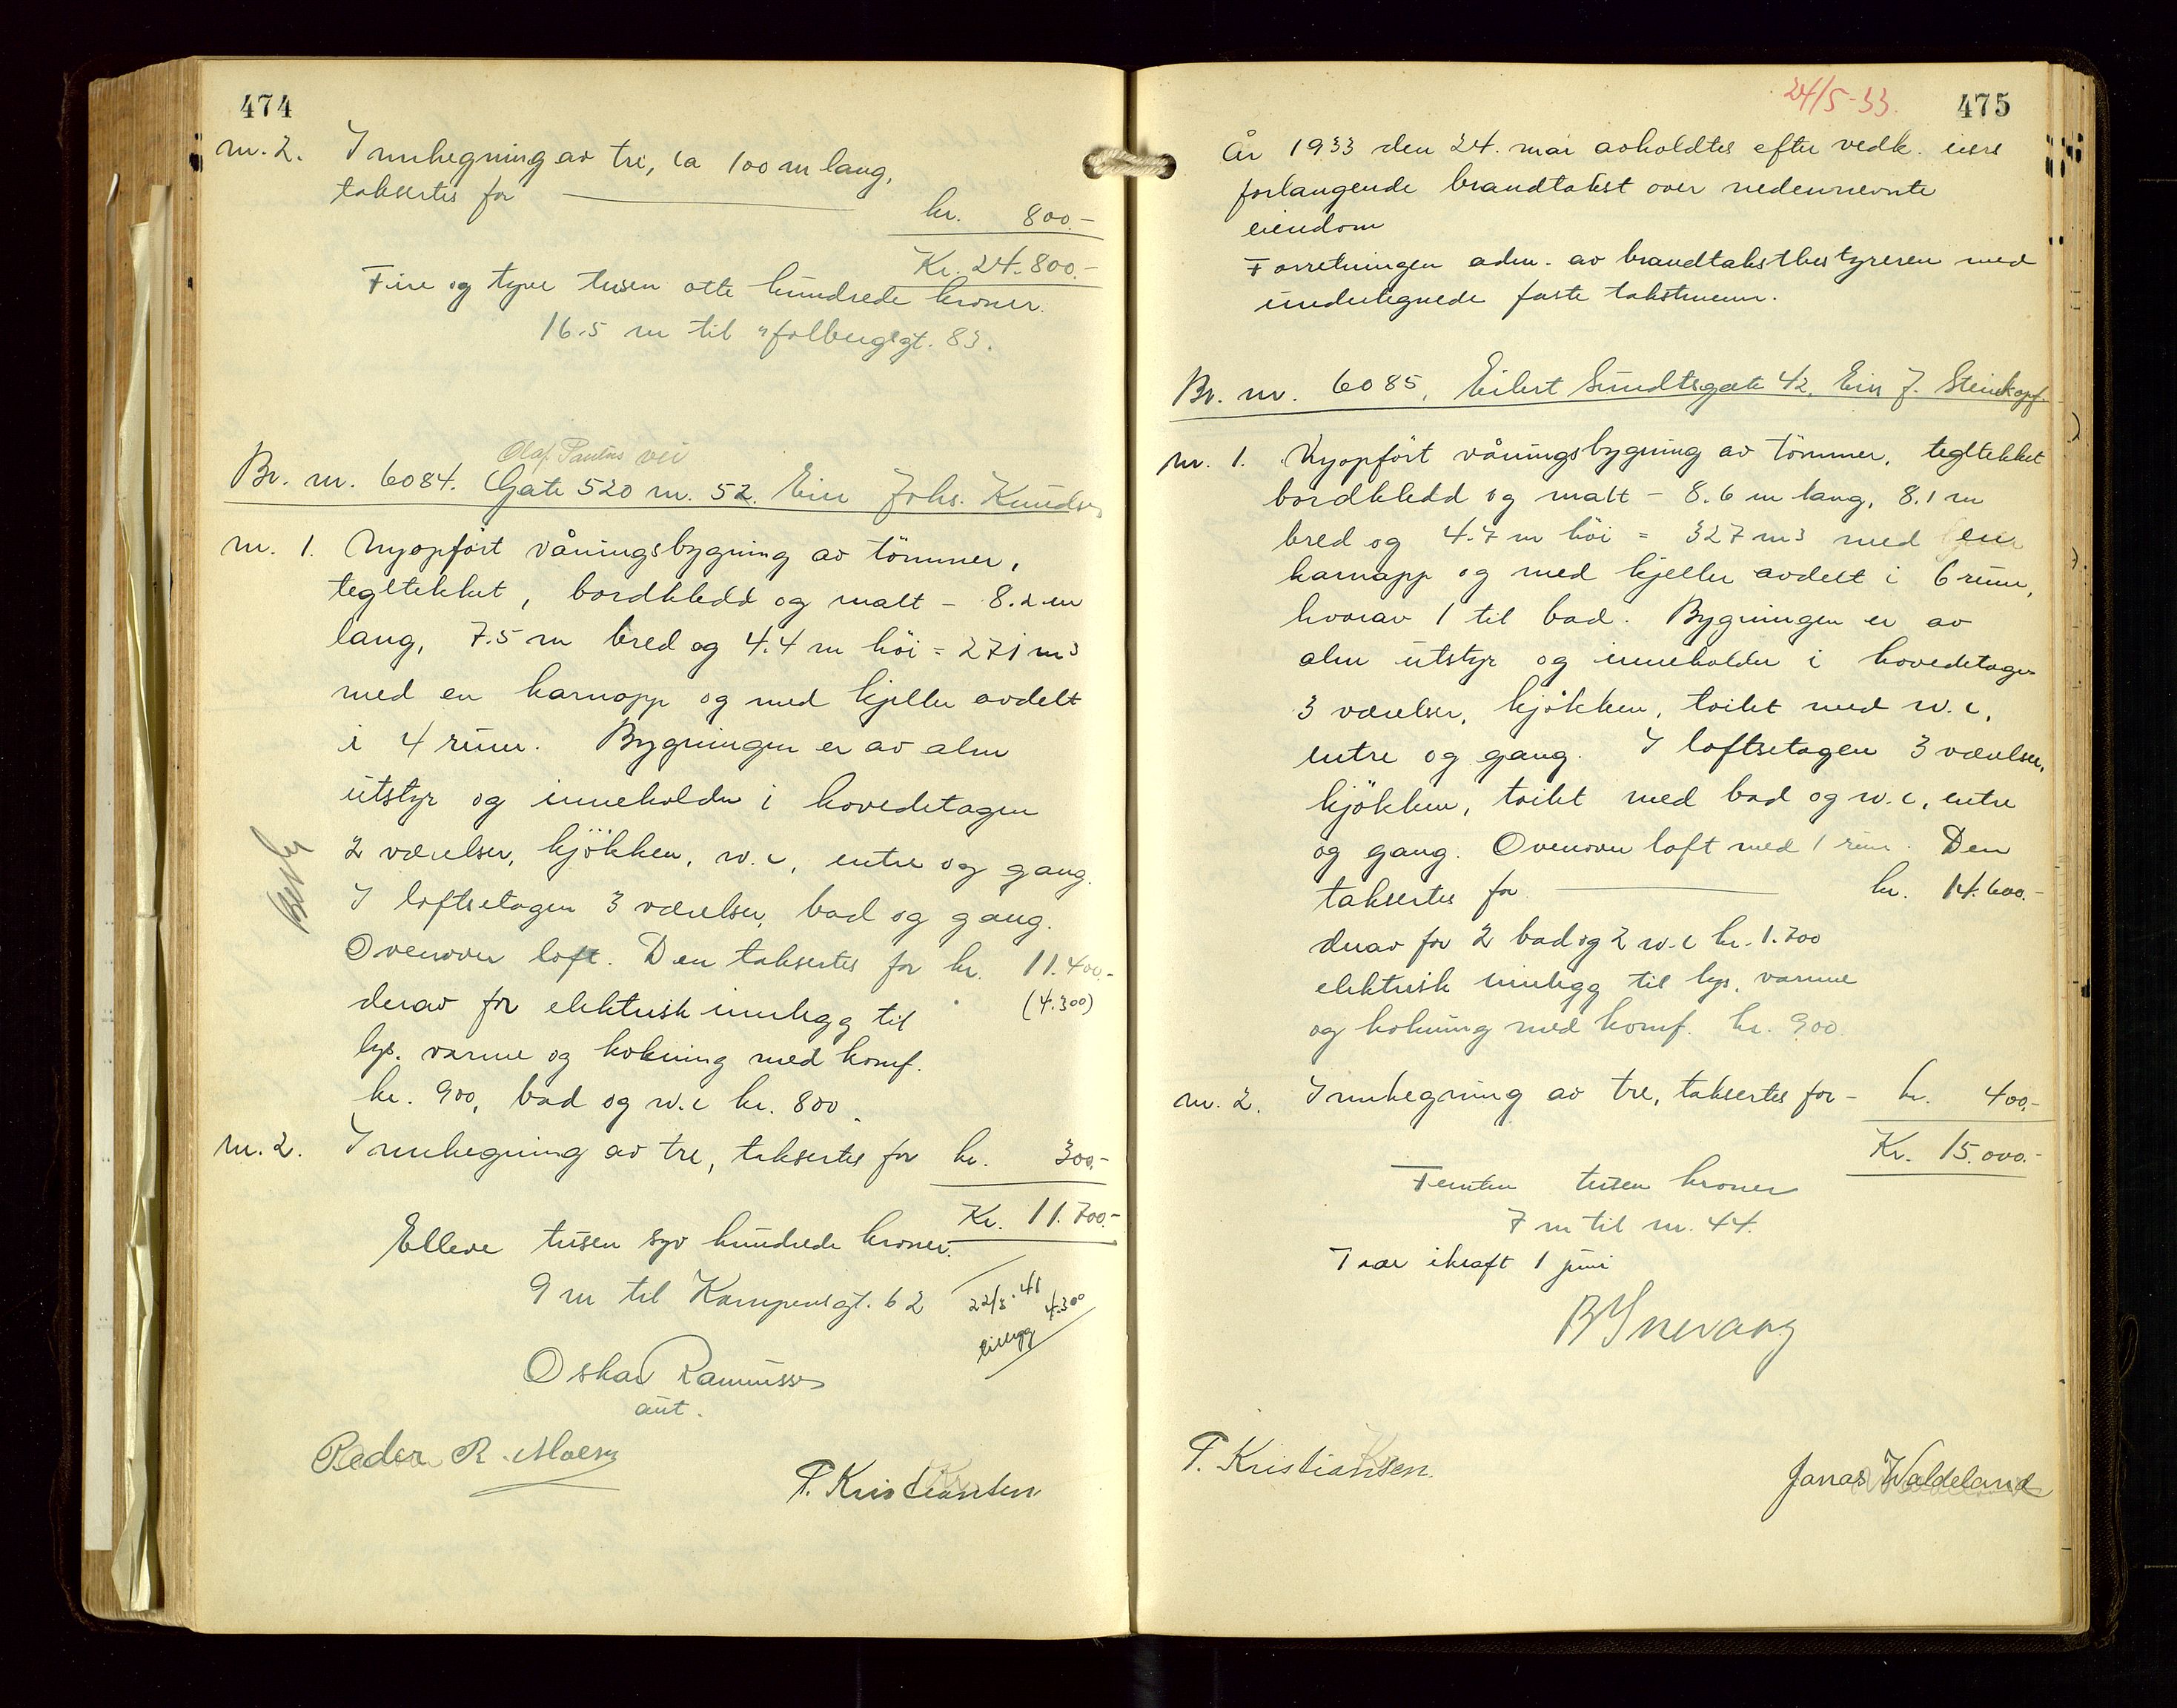 474
nr. 2. Innhegning av tre, ca 100 m lang,
taksertes for kr. 800.-
Kr. 24.800.-
Fire og tyve tusen otte hundrede kroner.
16.5 m til Holbergsgt. 83.
Olaf Paulus vei
Br. nr. 6084. Gate 520 nr. 52. Eier Johs. Knudsen
nr. 1. Nyopført våningsbygning av tömmer,
tegltekket, bordkledd og malt - 8.2 m
lang, 7.5 m bred og 4.4 m höi = 271 m3
med en karnapp og med kjeller avdelt
i 4 rum. Bygningen er av alm
utstyr og inneholder i hovedetagen
2 værelser, kjökken, w.c, entre og gang.
I loftsetagen 3 værelser, bad og gang.
Ovenover loft. Den taksertes for kr. 11.400.-
derav for elektrisk innlegg til (4.300)
lys, varme og kokning med komf.
kr. 900, bad og w.c kr. 800.
nr. 2. Innhegning av tre, taksertes for kr. 300.-
Kr. 11.700.-
Elleve tusen syv hundrede kroner.
9 m til Kampensgt. 62
22/3.41 4.300
Oskar Rasmussen
ass.
Peder R. Moen
P. Kristiansen
24/5-33.
475
År 1933 den 24. mai avholdtes efter vedk. eiers
forlangende brandtakst over nedennevnte
eiendom
Forretningen adm. av brandtakstbestyreren med
undertegnede faste takstmenn.
Br. nr. 6085, Eilert Sundtsgate 42, Eier J. Steinkopf.
nr. 1. Nyopfört våningsbygning av tömmer, tegltekket
bordkledd og malt - 8.6 m lang, 8.1 m
bred og 4.7 m höi = 327 m3 med en
karnapp og med kjeller avdelt i 6 rum,
hvorav 1 til bad. Bygningen er av
alm utstyr og inneholder i hovedetagen
3 værelser, kjökken, toilet med w.c,
entre og gang. I loftsetagen 3 værelser,
kjökken, toilet med bad og w.c, entre
og gang. Ovenover loft med 1 rum. Den
taksertes for kr. 14.600.-
derav for 2 bad og 2 w.c kr. 1.700
elektrisk innlegg til lys, varme
og kokning med komf. kr. 900.
nr. 2. Innhegning av tre, taksertes for - kr. 400.-
Kr. 15.000.-
Femten tusen kroner
7 m til nr. 44.
Trær ikraft 1 juni
P. Kristiansen.
Jonas Waldeland